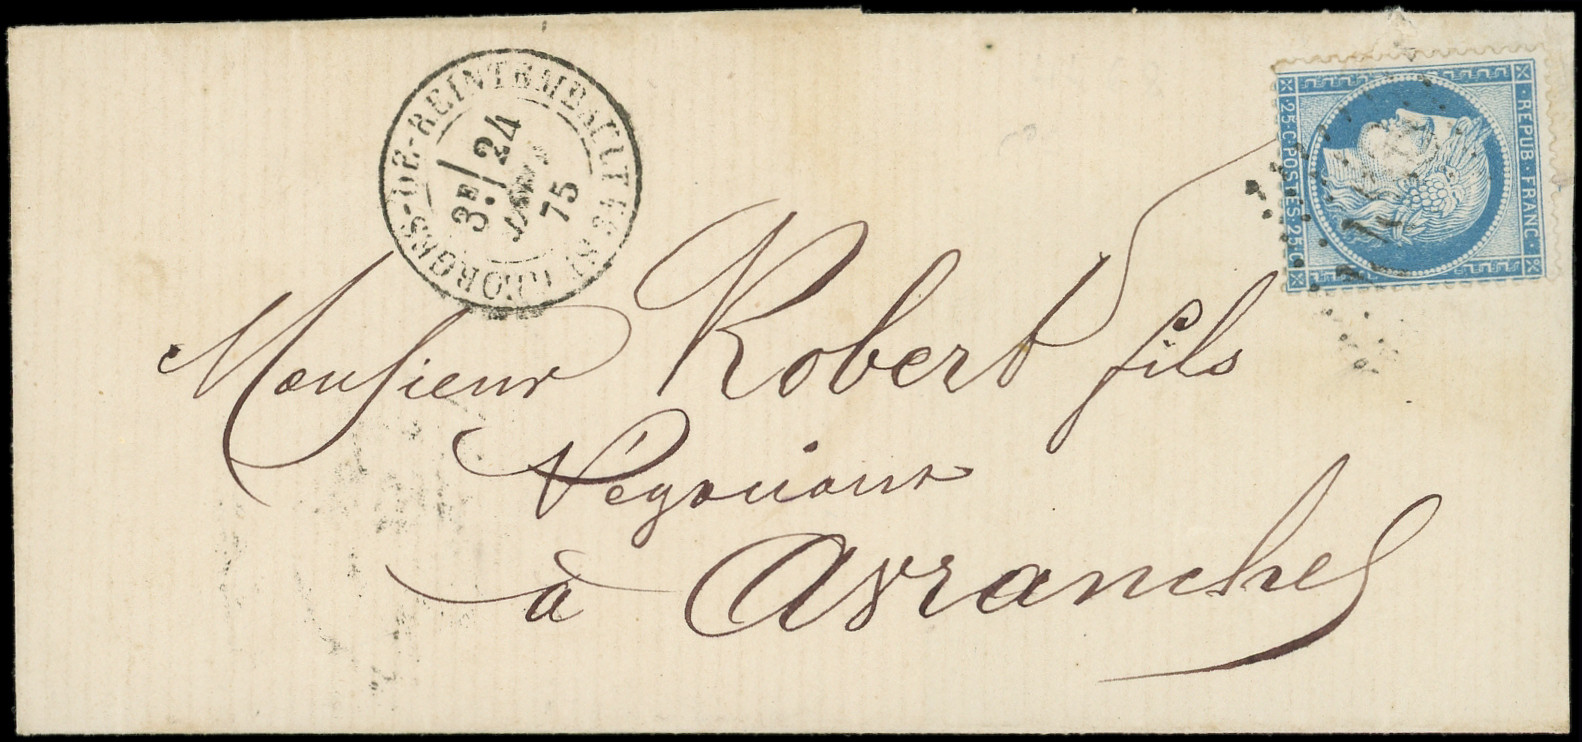 ST GEORGES-DE-REINTEMBAULT
3E 24
75
REPUB · FRANC ·
25 C · POSTES · 25 C
Monsieur Robert fils
Negociant
à Avranches